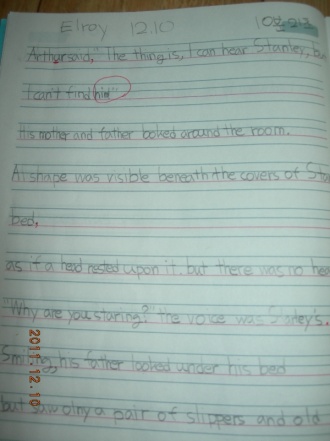 Elroy 12.10
Arthur said, "The thing is, I can hear Stanley, bu
I can't find him"
His mother and father looked around the room.
A shape was visible beneath the covers of Sta
bed,
as if a head rested upon it. but there was no hea
"Why are you staring?" the voice was Stanley's.
Smiling, his father looked under his bed
but saw olny a pair of slippers and old
2011.12.10